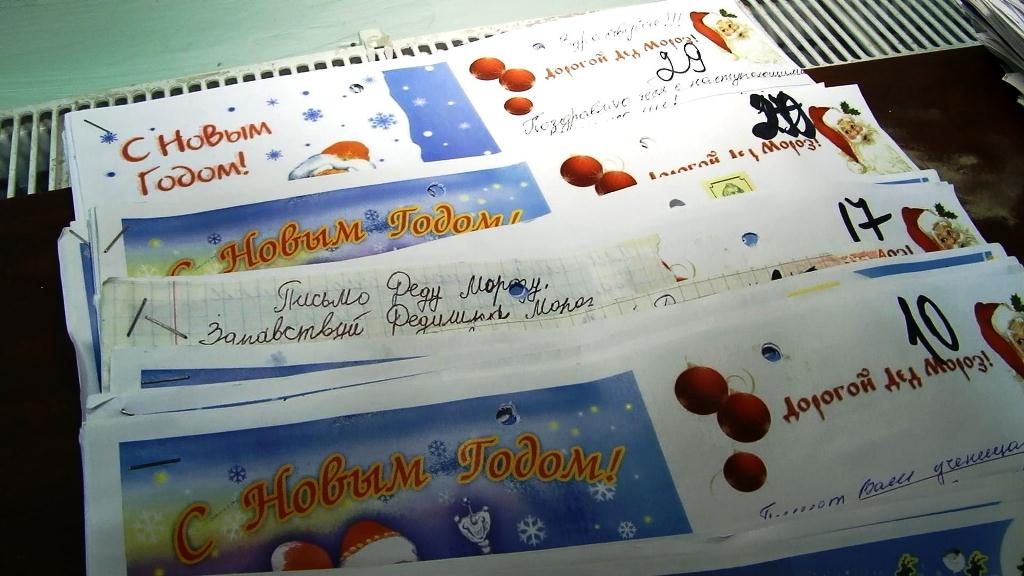 Здравствуй!!!
Дорогой Дед Мороз!
29
Поздравляю тебя с наступающим
С Новым
Годом!
Дорогой Дед Мороз!
С Новым Годом!
17
Письмо Деду Морозу.
Здравствуй Дедушка Мороз
10
Дорогой Дед Мороз!
Вам ученица
С Новым Годом!